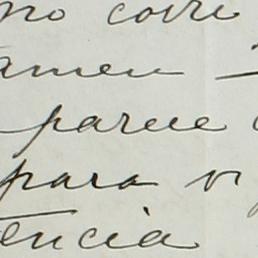 no corre
amen
parece
para vi
tencia